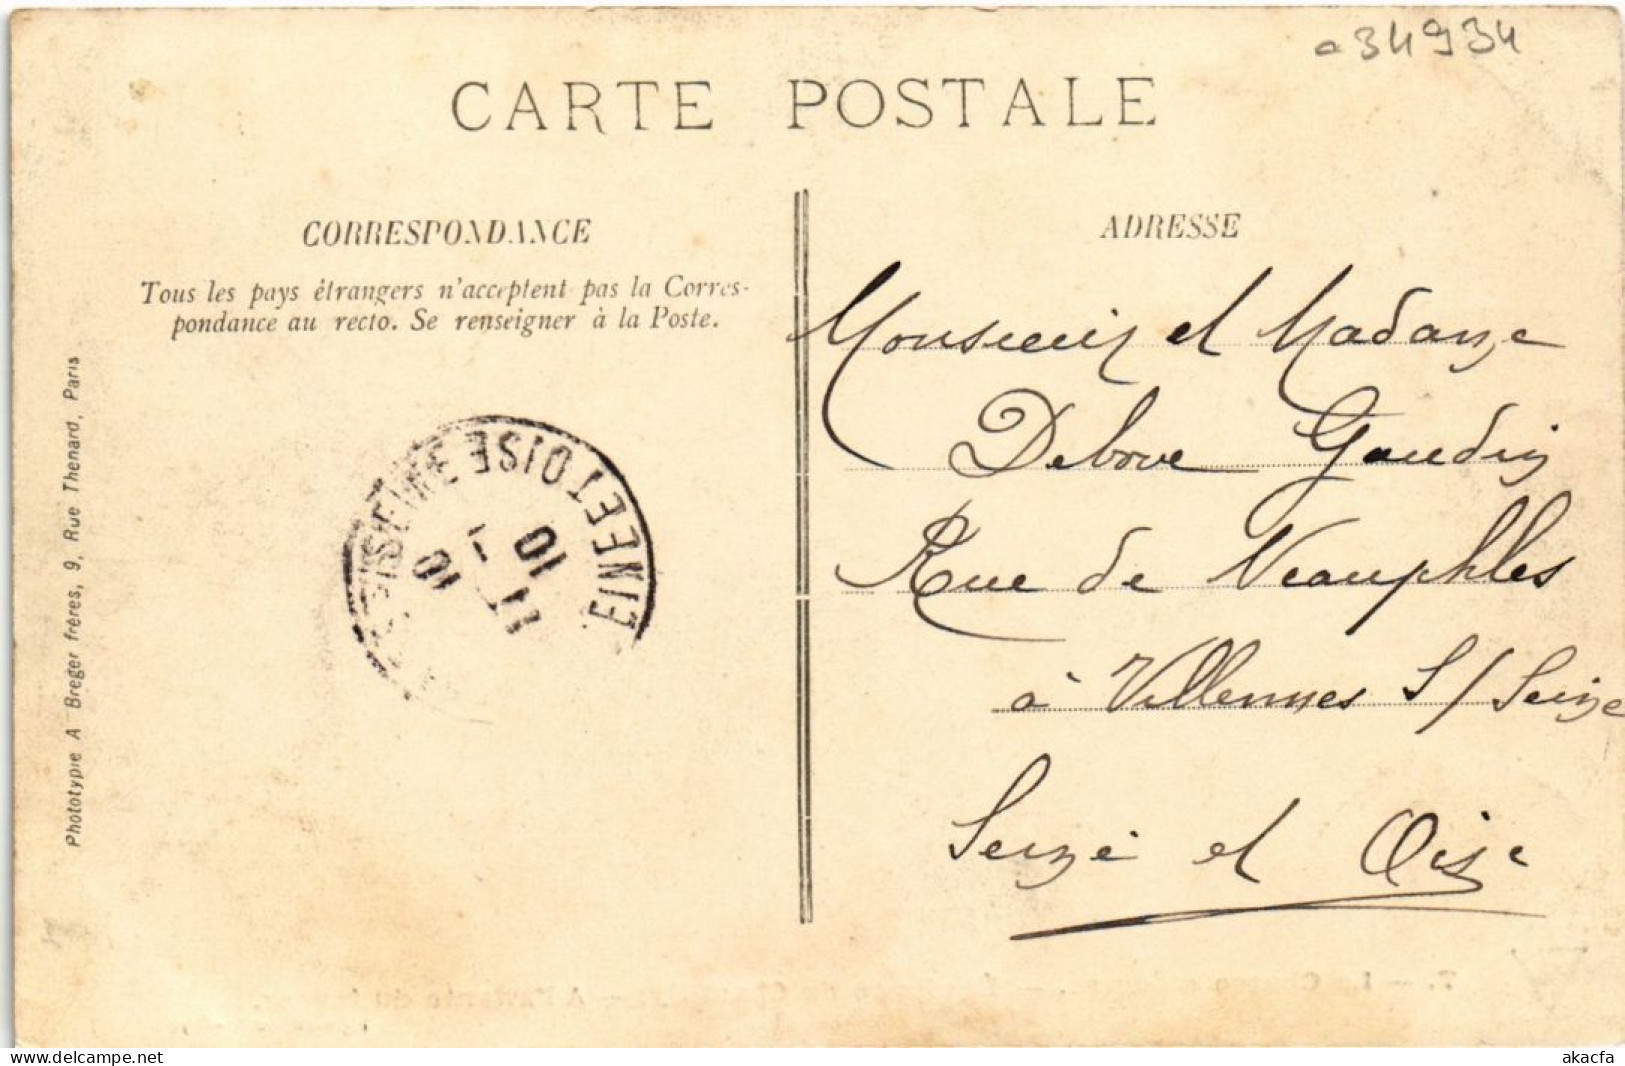 a34934
CARTE POSTALE
CORRESPONDANCE
Tous les pays étrangers n'acceptent pas la Corres-
pondance au recto. Se renseigner à la Poste.
ADRESSE
Monsieur et Madame
Debove Gaudin
Rue de Neauphles
à Villennes S/ Seine
Seine et Oise
EINE ET OISE
10
11 - 1
10
Phototypie A Breger frères, 9, Rue Thenard, Paris
delcampe.net
akacfa